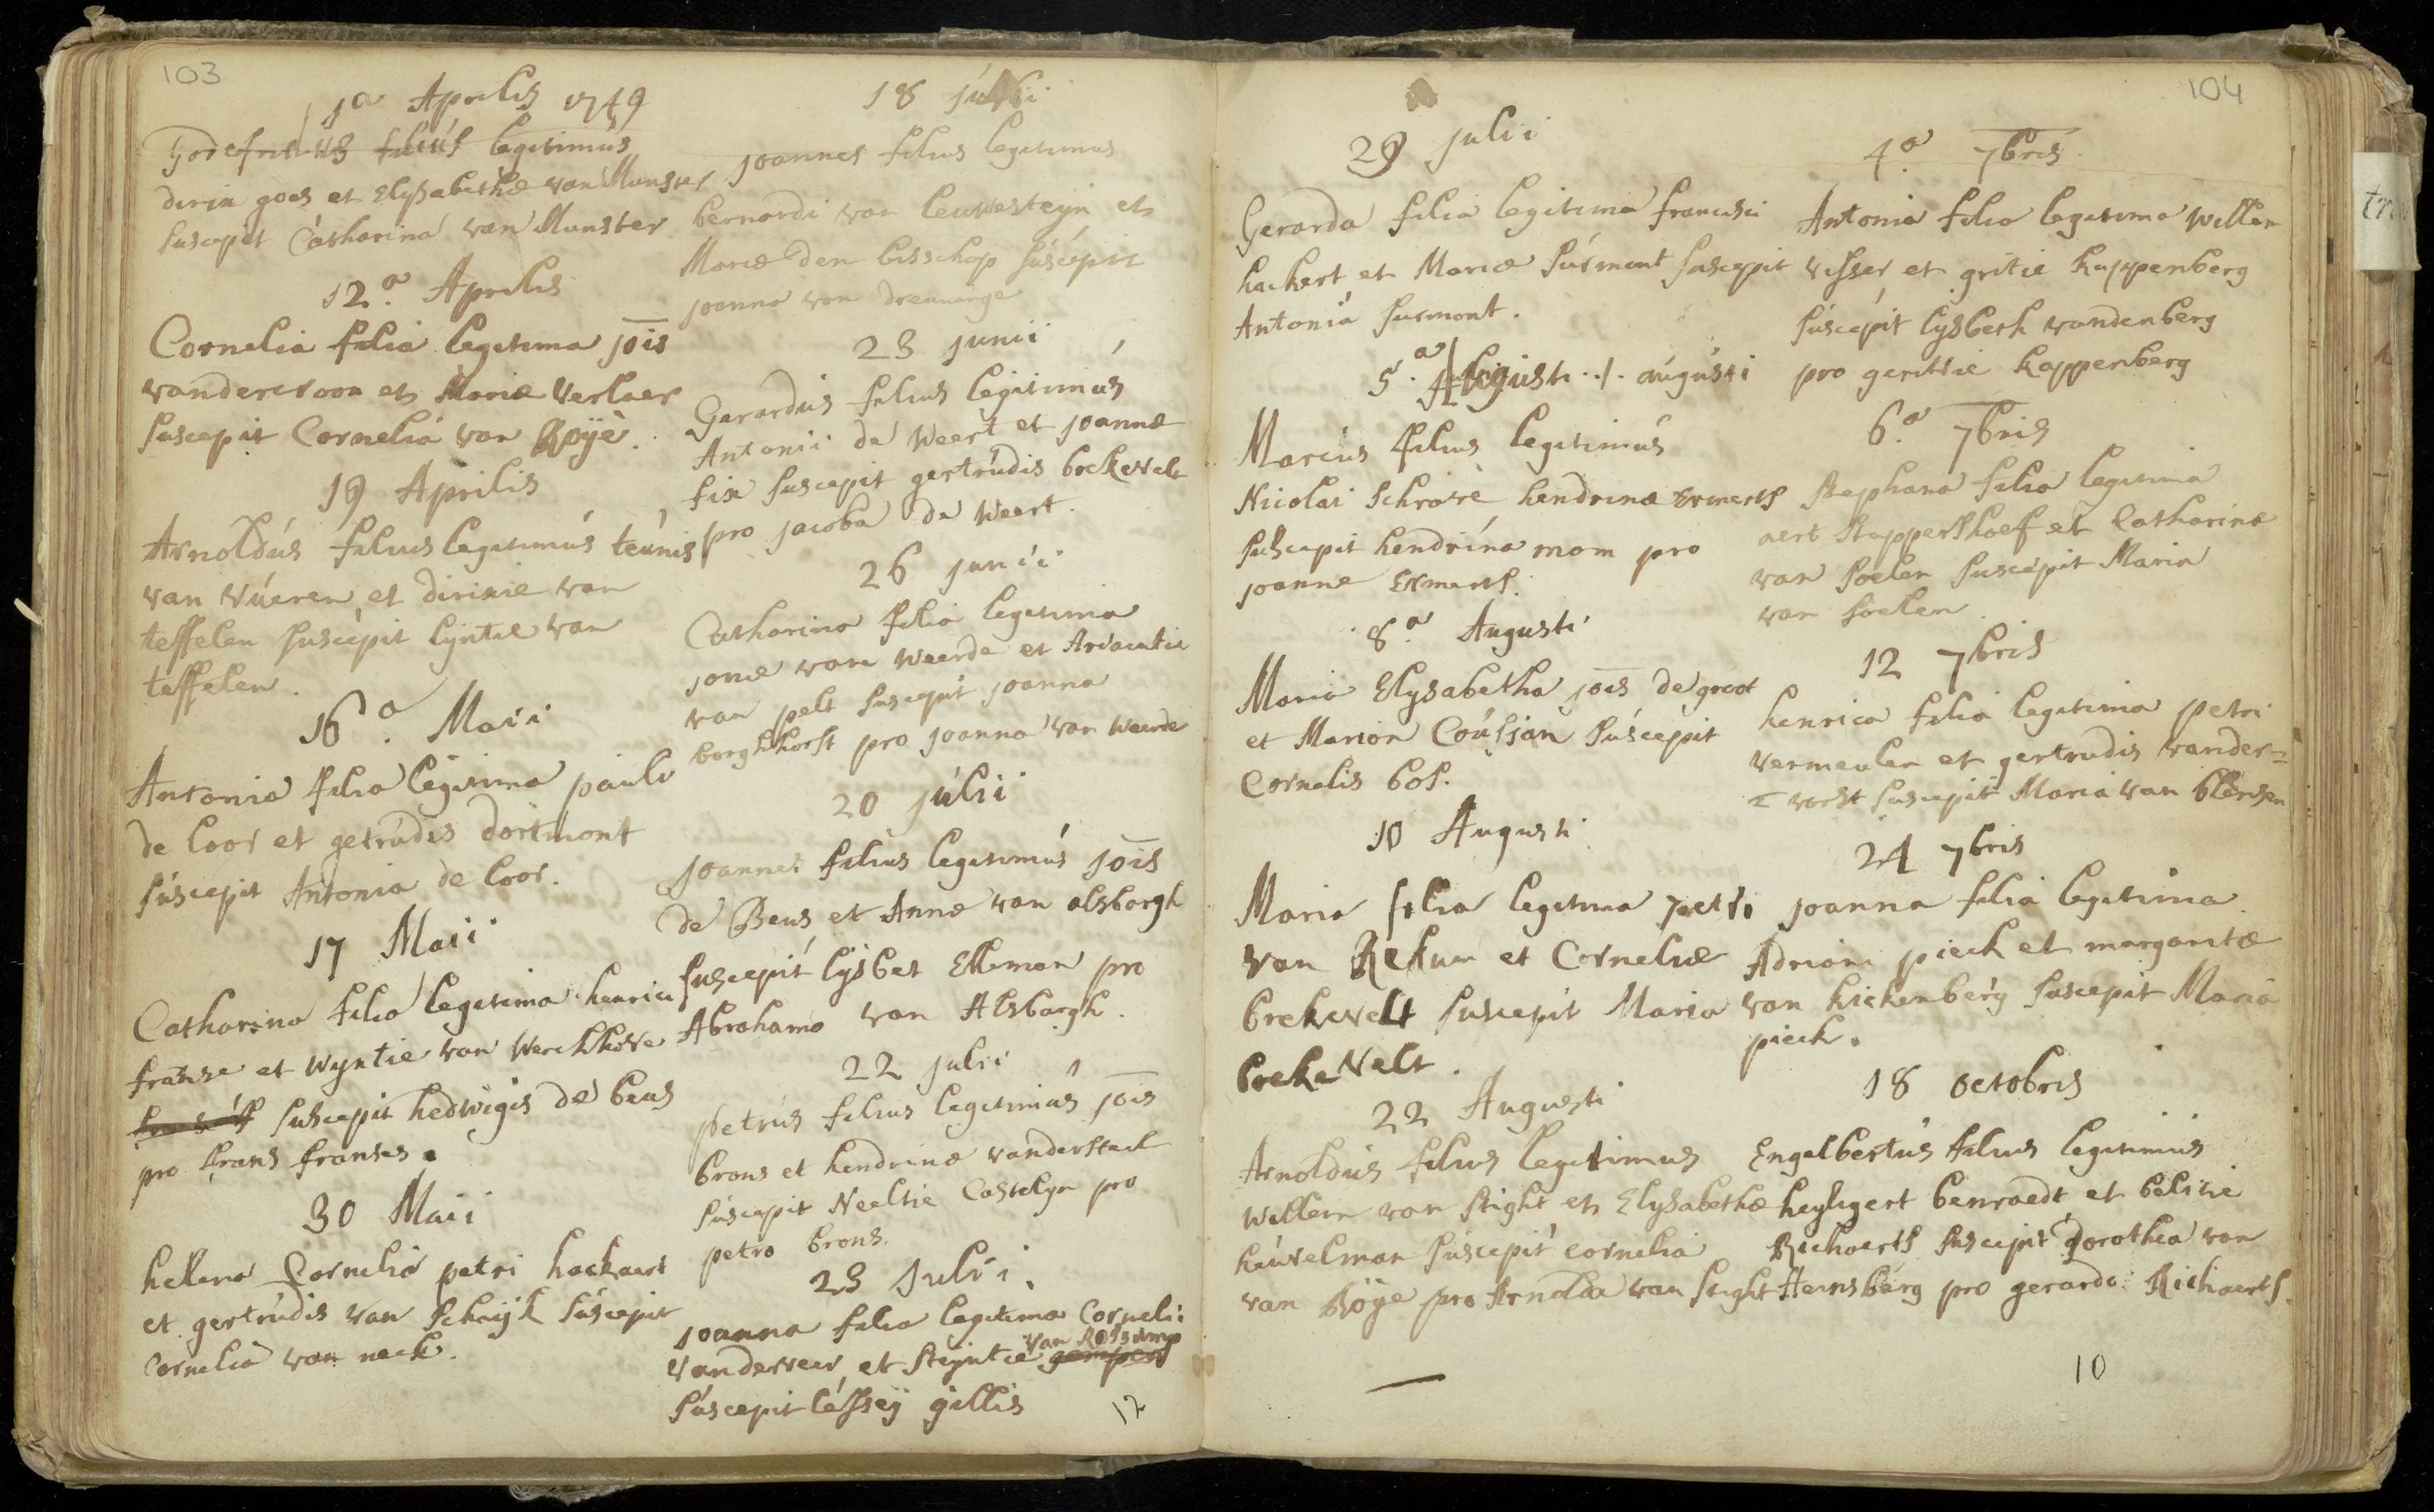 103
1a Aprilis 1749
Godefridus filius legitimus
dirix goes et Elysabethæ van Munster
suscepit Catharina van Munster
12.a Aprilis
Cornelia filia legitima jois
vandercroon et Mariæ Verlaer
suscepit Cornelia van Royè.
19 Aprilis
Arnoldus filius legitimus teunis
van Vúeren et dirixie van
teffelen suscepit lyntie van
teffelen.
16.a Maii
Antonia filia legitima pauli
de Coor et getrudis dortmont
suscepit Antonia de Coor.
17 Maii
Catharina filia legitima henrici
franse et Wyntie van Werckhove
suscepit hedwigis de beus
pro frans franses.
30 Maii
hellena Cornelia petri hackaert
et gertrudis van Schaijk suscepit
Cornelia van neck.
18
joannes filius legitimus
bernardi van leuwesteyn et
Mariæ den bisschop suscepit
joanna van dreuninge
23 junii
Gerardus filius legitimus
Antonii de Weert et joannæ
fix suscepit gertrudis brekevelt
pro jacoba de Weert.
26 junii
Catharina filia legitima
jonæ van Weerde et Ariaentie
van pelt suscepit joanna
borghhorst pro joanna van Weerde
20 julii
joannes filius legitimus jois
de Beus et Annæ van alsbargh
suscepit lysbet Elleman pro
Abrahamo van Alsbargh.
22 julii
petrus filius legitimus jois
brons et hendrinæ vanderstael
suscepit Neeltie Castelyn pro
petro brons.
23 Julii.
joanna filia legitima Cornelii
van Rossump
vanderveer et Steyntie gempert
suscepit Cessey gillis
12
104
29 julii
Gerarda filia legitima francisci
hackert et Mariæ surmont suscepit
Antonia surmont.
5.a ./. augusti
Marcus filius legitimus
Nicolai Schrave hendrinæ Ermerts
suscepit hendrina mom pro
joanne Ermerts.
8.a Augusti
Maria Elysabetha jois de groot
et Marion Coussan suscepit
Cornelis bos.
10 Augusti
Maria filia legitima petri
van Rekum et Corneliæ
brekevelt suscepit Maria
brekevelt.
22 Augusti
Arnoldus filius legitimus
Willem van stight et Elysabethæ
heuvelman suscepit cornelia
van Röye pro Arnolda van stight
4.a 7bris
Antonia filia legitima Willem
Visser et gritie kappenberg
suscepit lysbeth vandenberg
pro gerittie kappenberg
6.a 7bris
Stephana filia legitima
aert Stappershoef et Catharinæ
van soelen suscepit Maria
van soelen.
12 7bris
henrica filia legitima petri
vermeulen et gertrudis vander=
= vorst suscepit Maria van
24 7bris
joanna filia legitima
Adriani pieck et margaritæ
van hickenberg suscepit Maria
pieck.
18 octobris
Engelbertus filius legitimus
heyligert benraedt et belitie
Richaerts suscepit dorothea van
Heinsberg pro gerarda Richaerts.
10